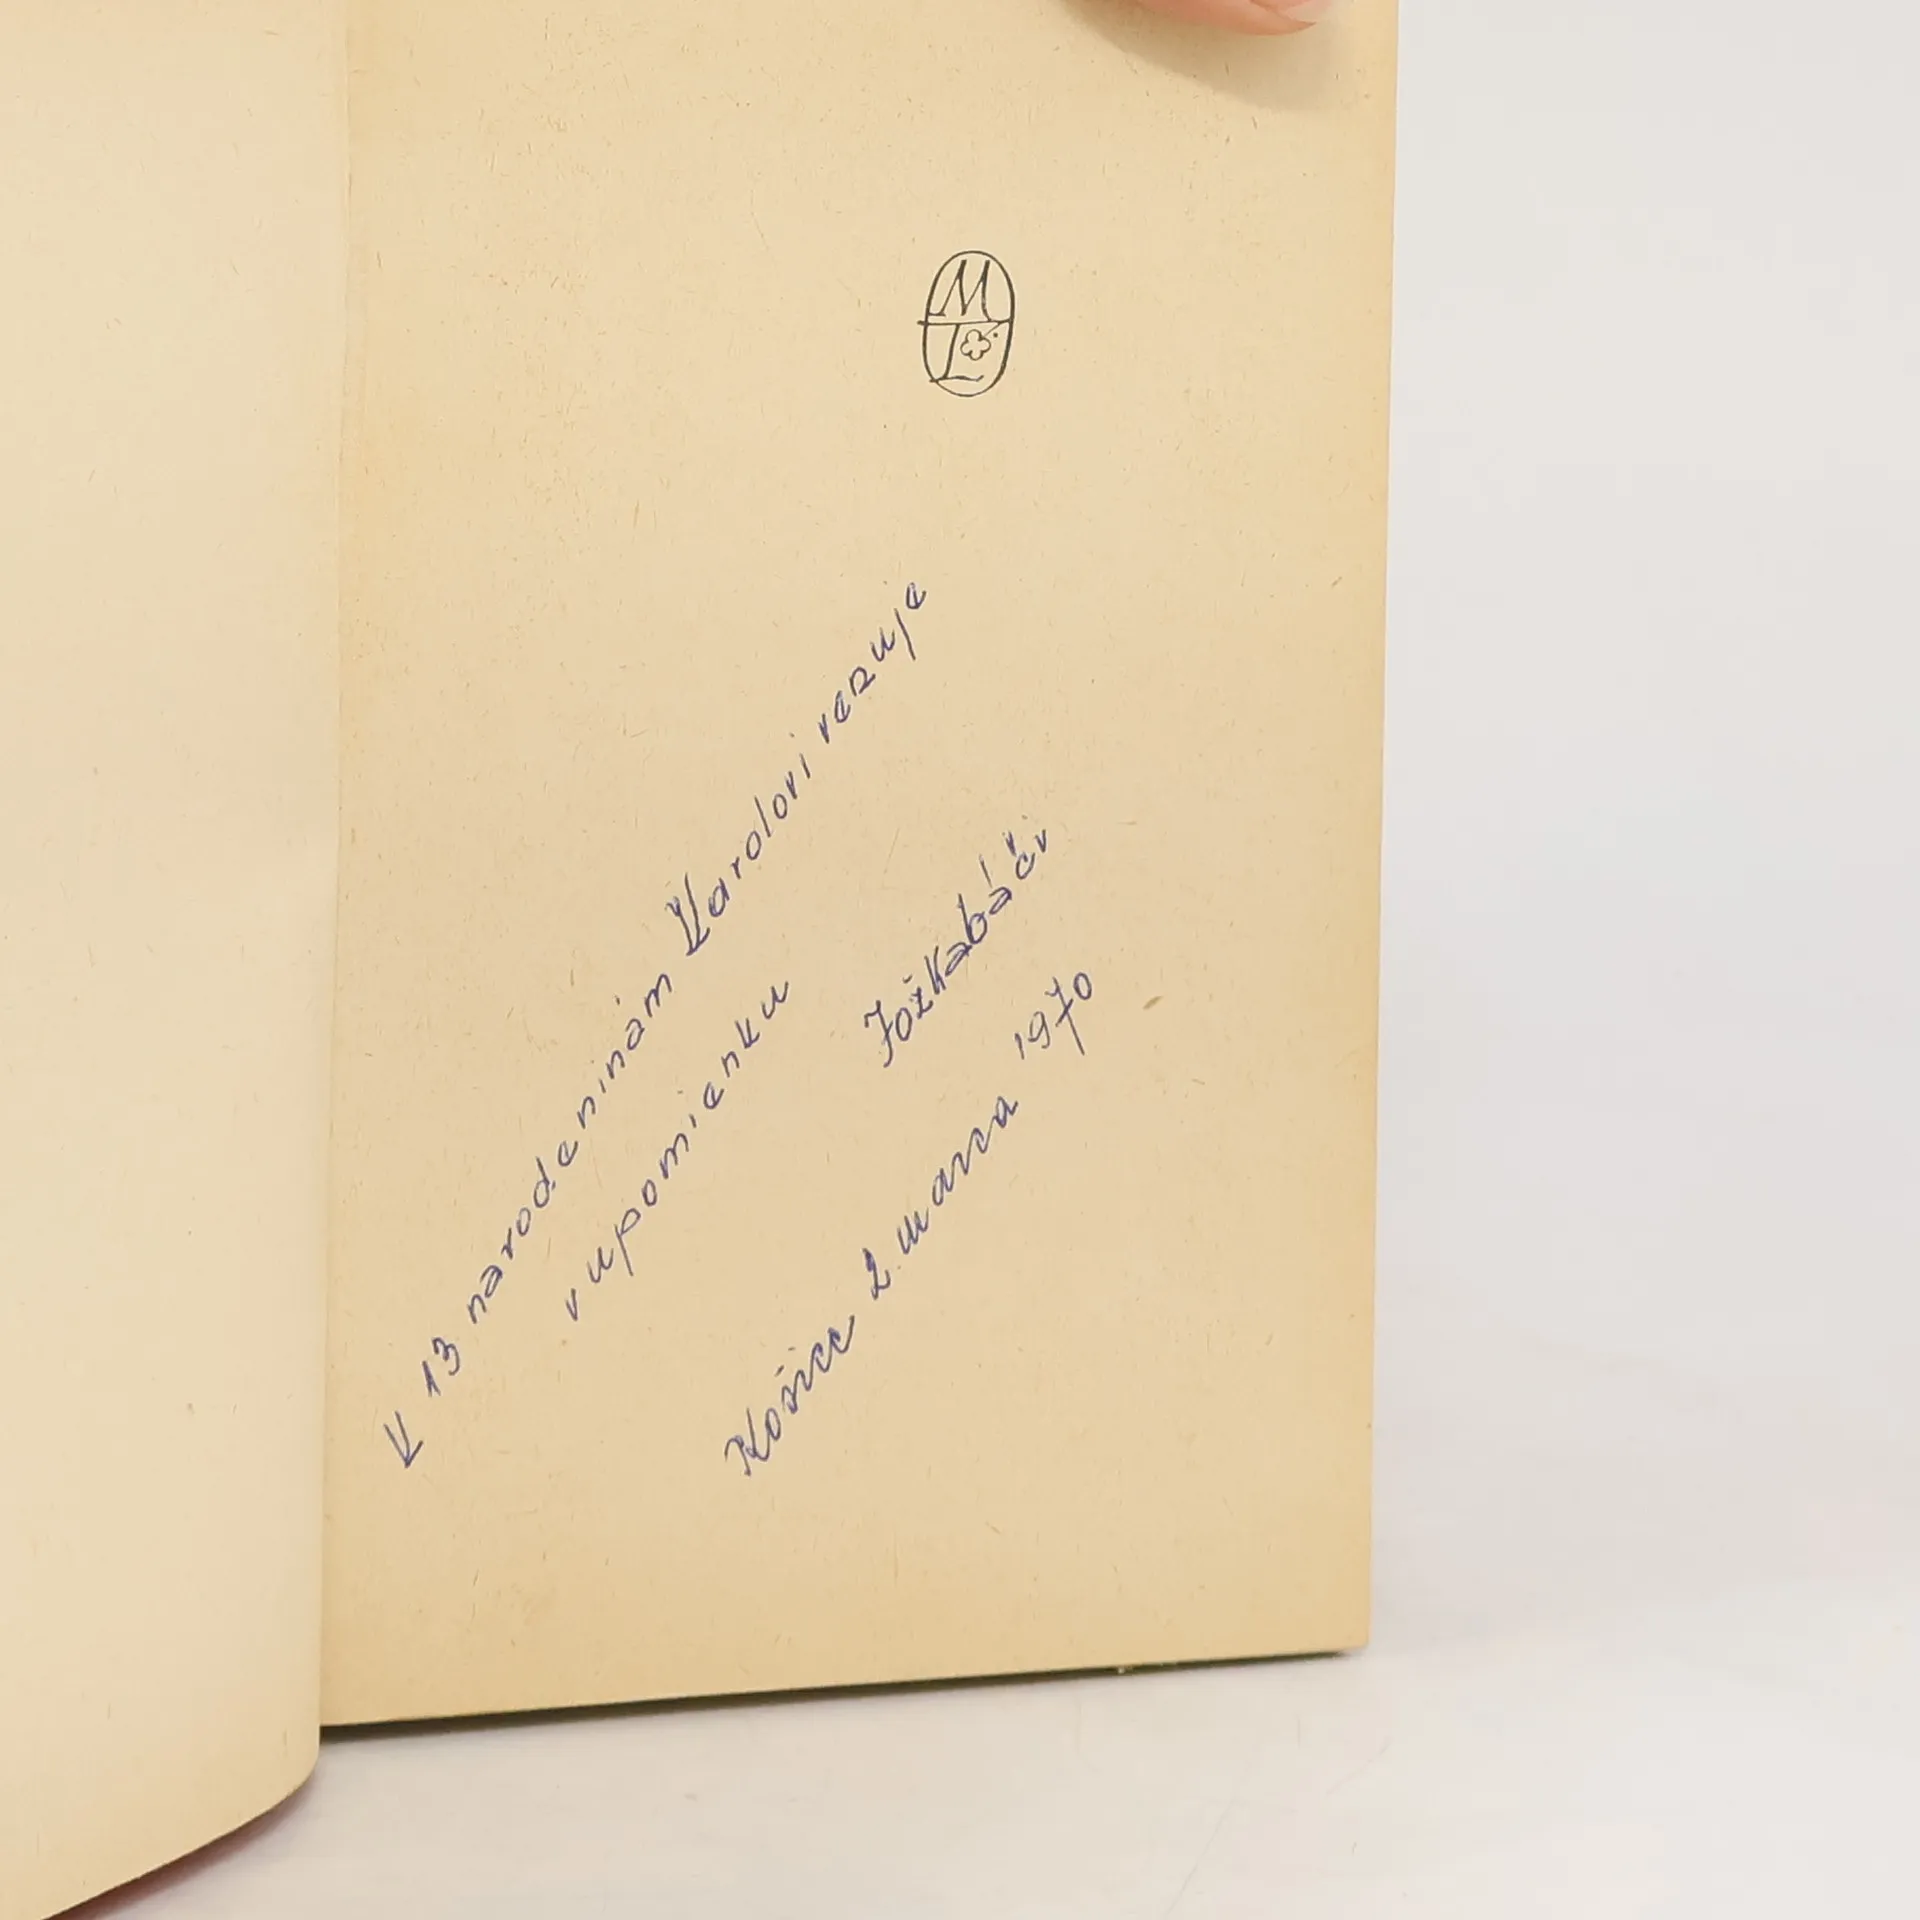 ML
K 13 narodeninám Karolovi venuje
v upomienku
Jožkabáči
Košice 2. marca 1970